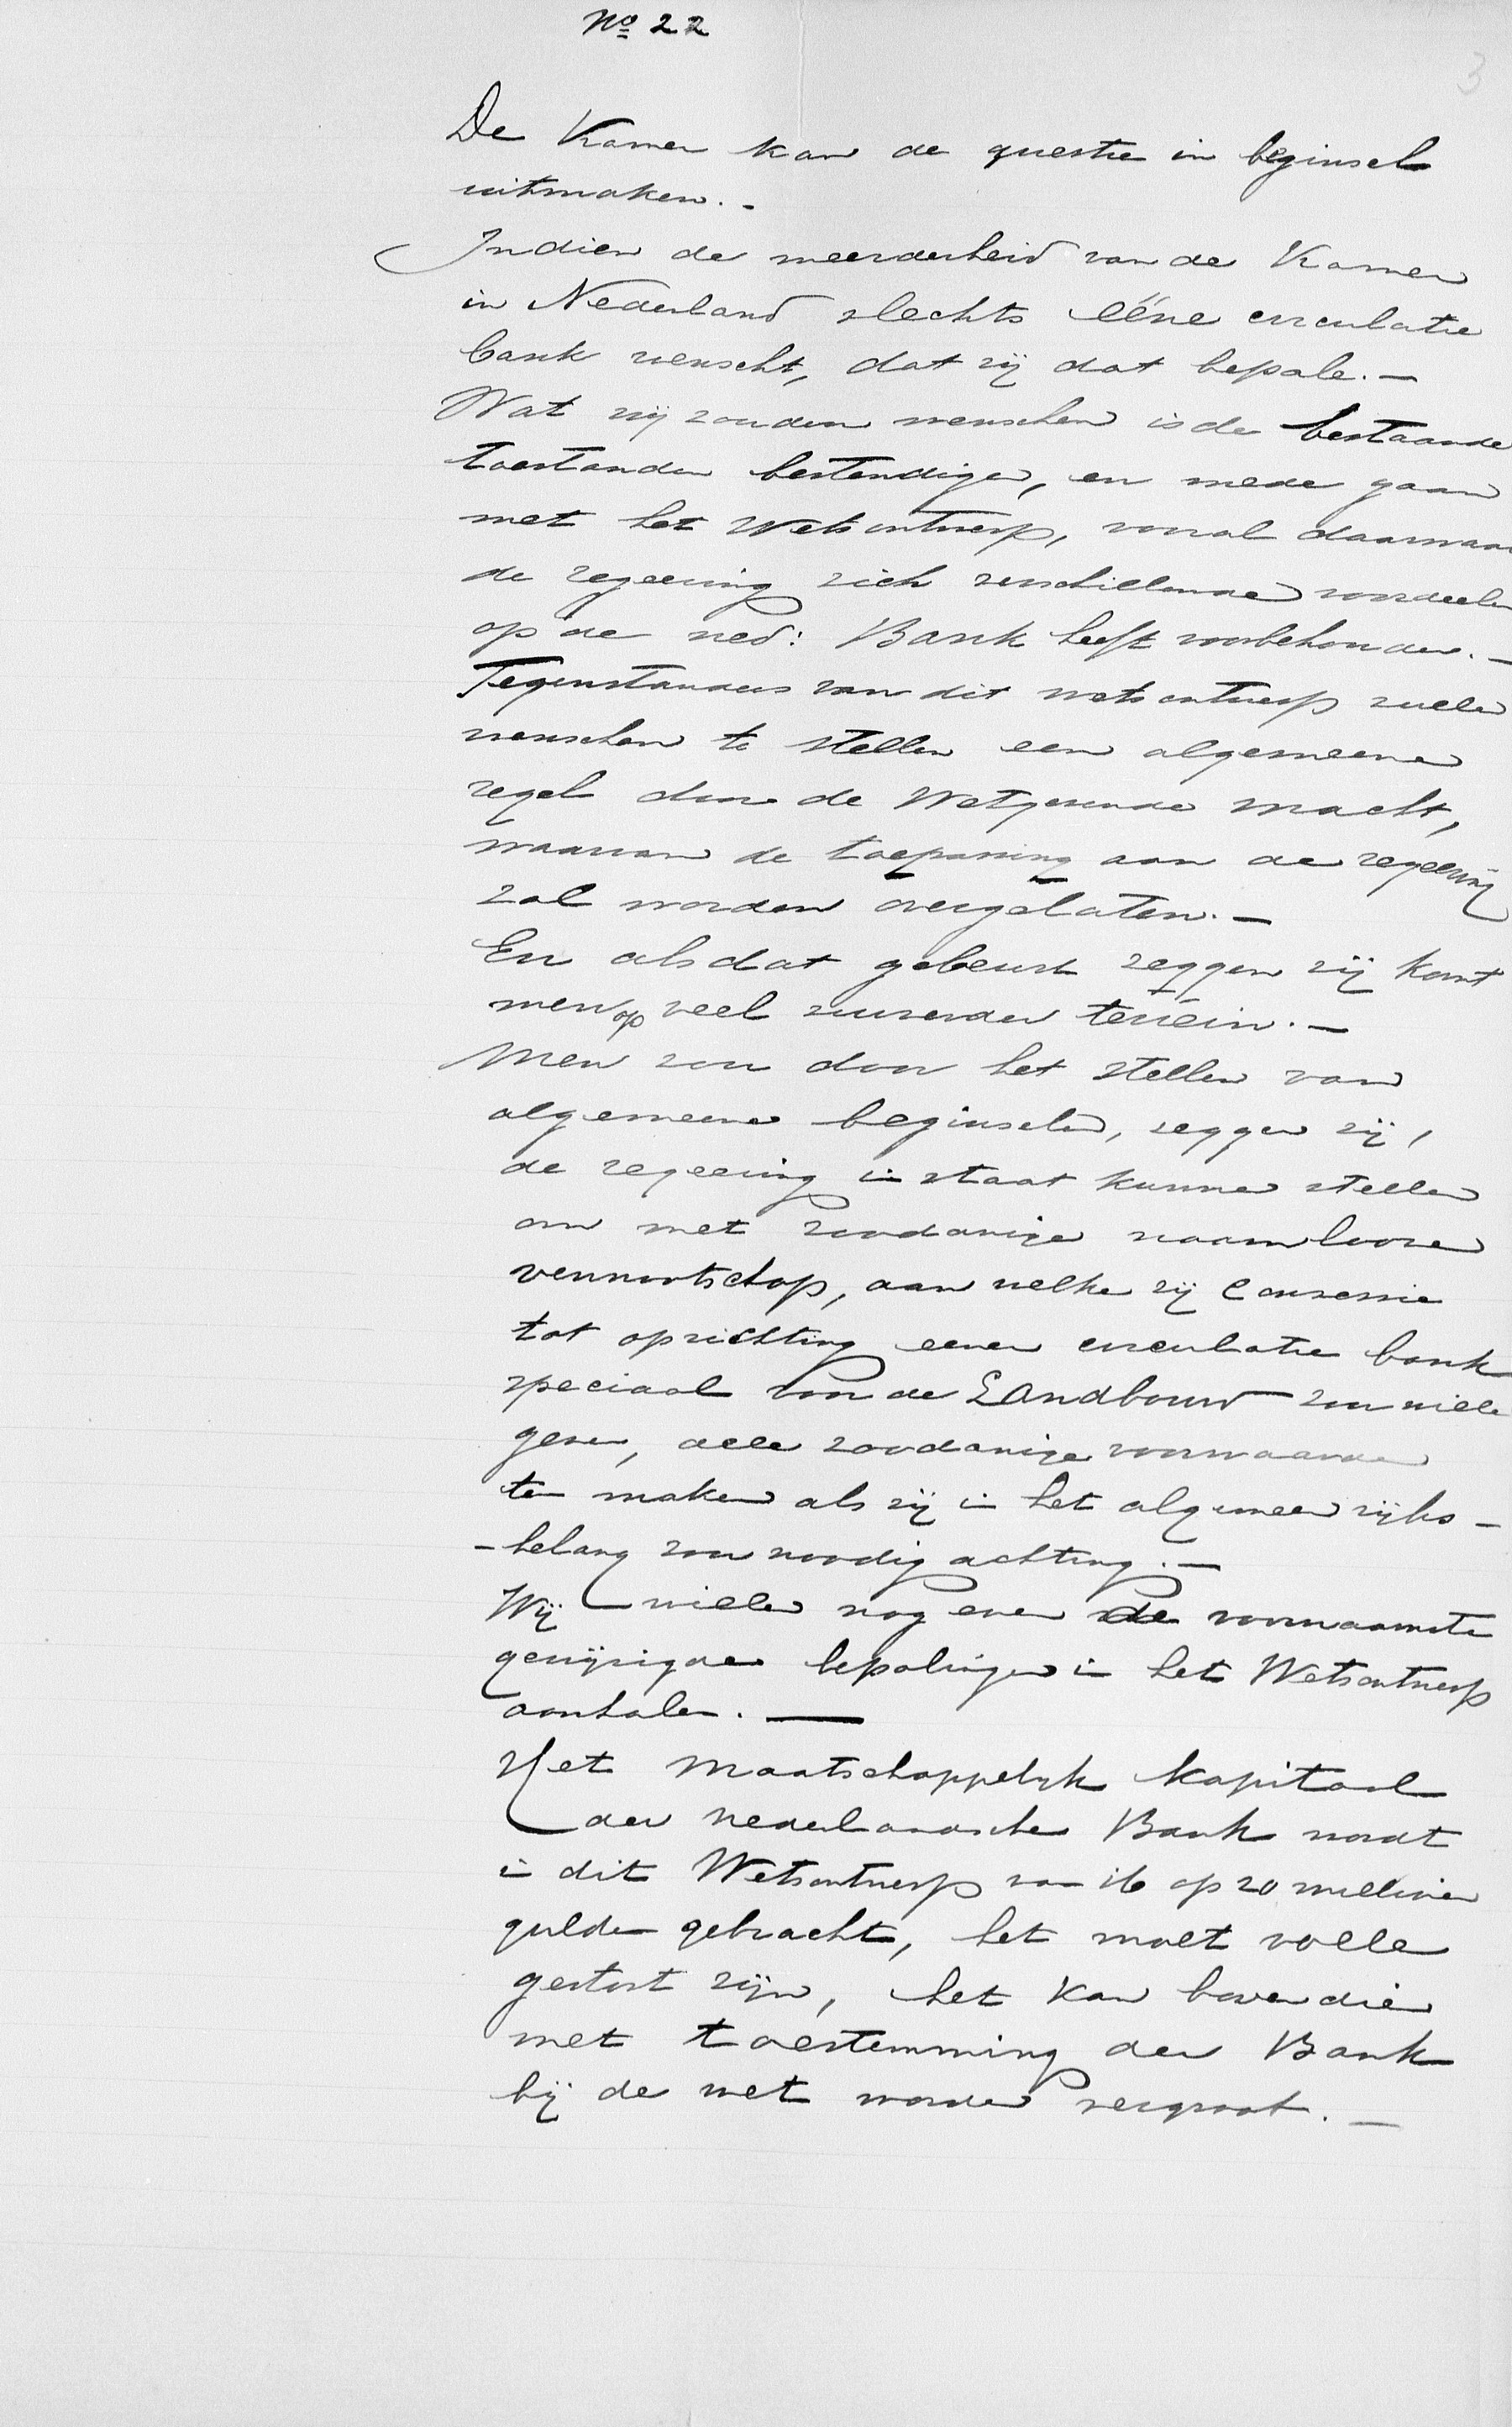 No 22
3
De Kamer kan de questie in beginsel
uitmaken. -
Indien de meerderheid van de Kamer
in Nederland slechts ééne circulatie
bank wenscht, dat zij dat bepale. -
Wat wij zouden wenschen is de bestaande
toestanden bestendigen, en mede gaan
met het Wetsontwerp, vooral daar waar
de regeering zich verschillende voordeelen
op de ned: Bank heeft voorbehouden. -
Tegenstanders van dit wetsontwerp zullen
wenschen te stellen een algemeene
regel door de Wetgevende macht,
waarvan de toepassing aan de regeering
zal worden overgelaten. -
En als dat gebeurt zeggen zij komt
men op veel zuiverder terrein. -
Men zou door het stellen van
algemeene beginselen, zeggen zij,
de regeering in staat kunnen stellen
om met zoodanige naamlooze
vennootschap, aan welke zij concessie
tot oprichting eener circulatie bank
speciaal voor de Landbouw zou willen
geven, alle zoodanige voorwaarden
te maken als zij in het algemeen rijks -
- belang zou noodig achting. -
Wij willen nog even de voornaamste
gewijzigde bepalingen in het Wetsontwerp
aanhalen. -
Het Maatschappelijk kapitaal
der Nederlandsche Bank wordt
in dit Wetsontwerp van 16 op 20 millioen
gulden gebracht, het moet volle
gestort zijn, het kan bovendien
met toestemming der Bank
bij de wet worden vergroot. -